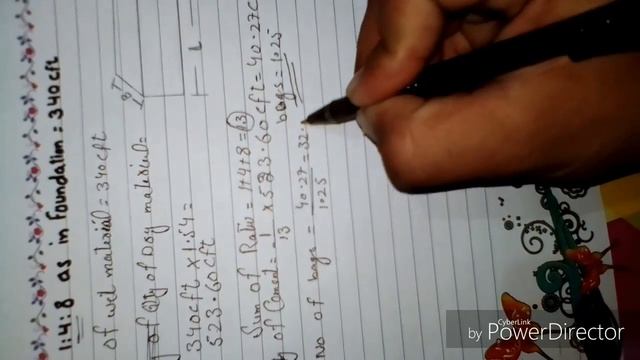 1:4:8 as in Foundation = 340cft
of wet material = 340cft
of Qty of Dry material =
340cft x 1.54 =
523.60cft
Sum of Ratio = 1+4+8 = 13
of Cement = 1/13 x 523.60cft = 40.27c
bags = 1.25
No of bags = 40.27/1.25 = 32.
L
by CyberLink PowerDirector